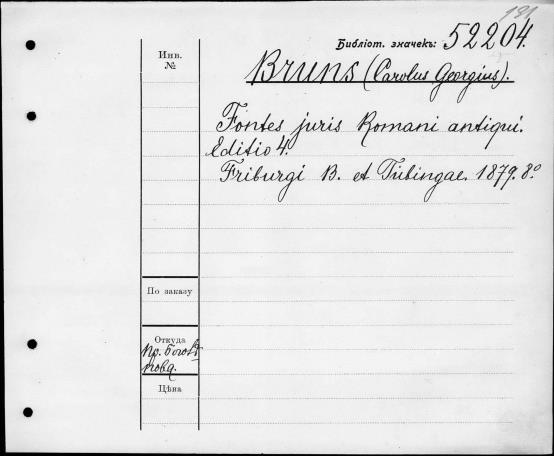 181
Библіот. значекъ: 52204.
Инв.
№
Bruns (Carolus Georgius).
Fontes juris Romani antiqui.
Editio 4.
Friburgi B. et Tubingae. 1879. 8º
По заказу
Откуда
Пр.
Цѣна